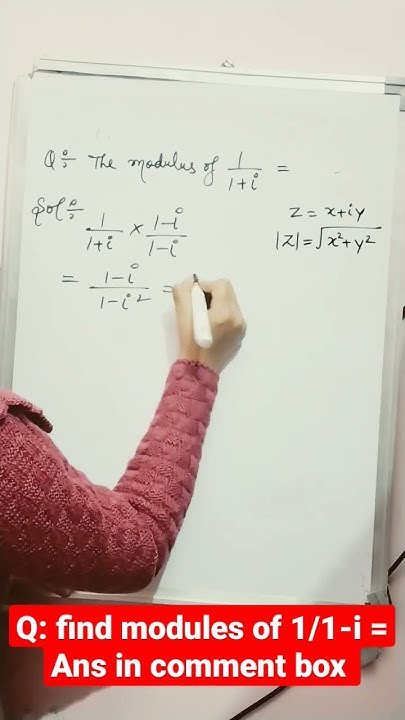 Q:- The modulus of 1/1+i =
Sol:- 1/1+i × 1-i/1-i
= 1-i/1-i² =
z = x+iy
|z| = √x²+y²
Q: find modules of 1/1-i =
Ans in comment box